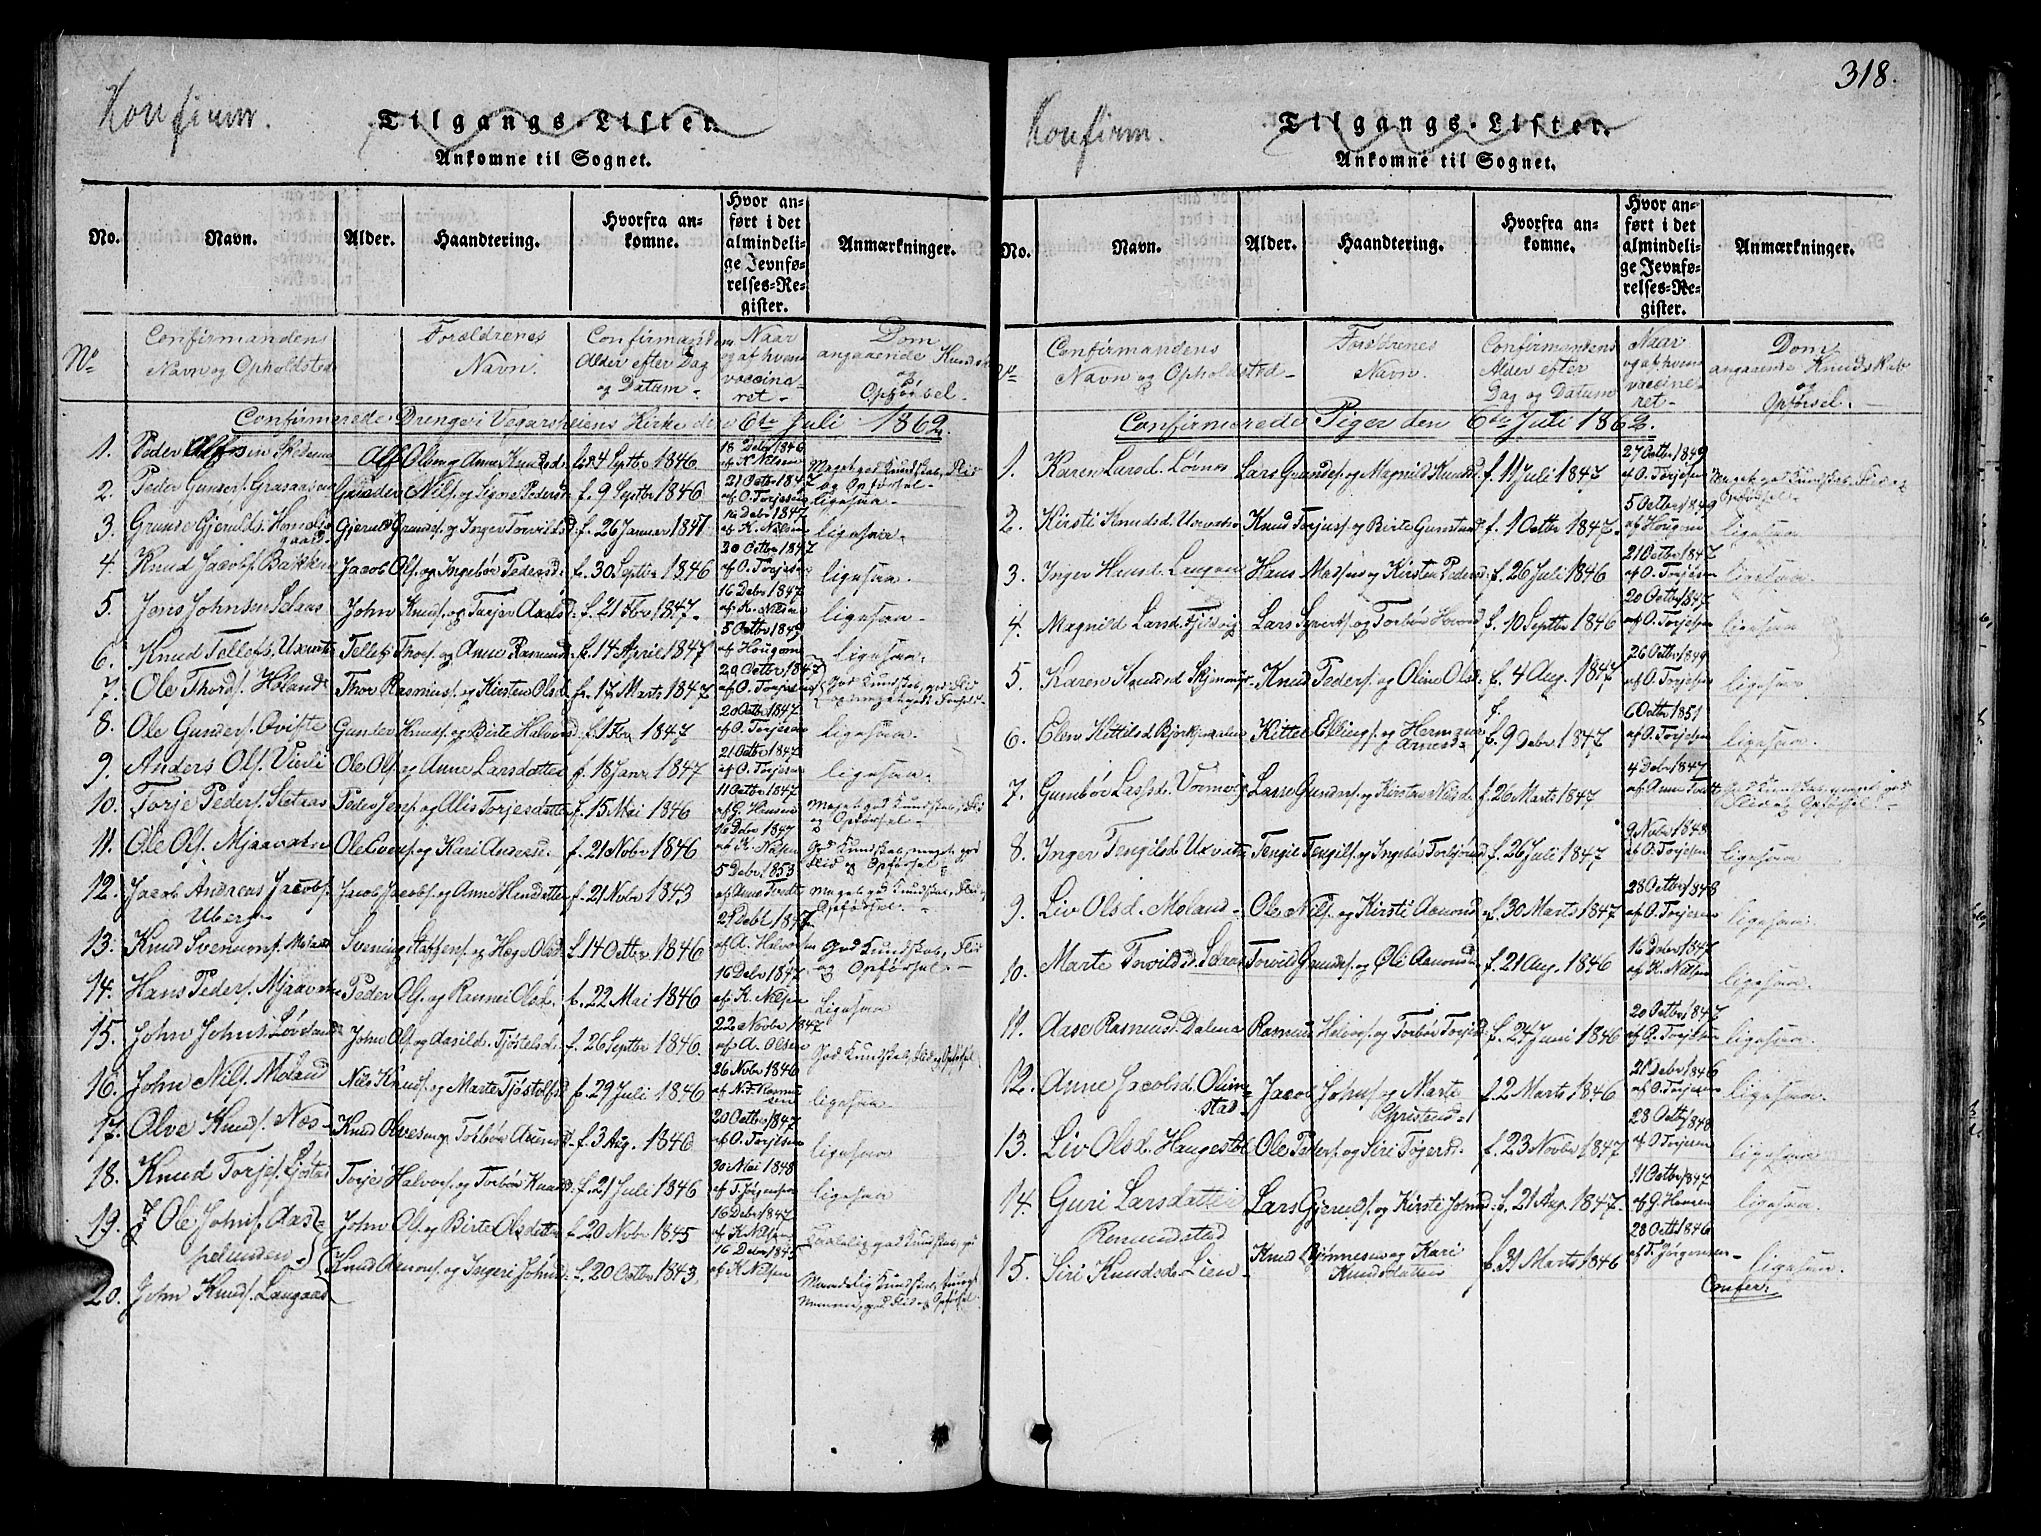 Konfirm.
Tilgangs-Lister.
Ankomne til Sognet.
No.
Navn.
Alder.
Haandtering.
Hvorfra an-
komne.
Hvor an-
ført i det
almindeli-
ge Jevnfø-
relses-Re-
gister.
Anmærkninger.
No
Confirmandens
Navn og Opholdsted
Forældrenes
Navn.
Confirmandens
Alder efter Dag
og Datum
Naar
og af hvem
vaccine-
ret
Dom
angaaende Kundsk
og
Opførsel.
Confirmerede Drenge i Vegarsheiens Kirke den 6te Juli 1862.
1. Peder Alfsen Alf Olsen og Anne Knudsd. 4 Septbr 1846 18 Debr 1846 af K Nilsen Maget god Kundskab, Flid og Opførsel
2. Peder Gunders. Gunder Nils. og Signe Pedersd. f. 9 Septbr 1846 21 Octbr 1847 af O. Torjesen ligesaa
3. Grunde Gjerulds. Gjeruld Grundes. og Inger Torvildsd. f. 26 Januar 1847 16 Debr 1847 af K. Nilsen ligesaa
4. Knud Jacobs. Bakken Jacob Ols. og Ingebør Pedersd. f. 30 Septbr 1846 20 Octbr 1847 af O. Torjesen ligesaa
5. Jens Johnsen Selaas John Knuds. og Torjer Axelsd. f. 21 Fbr 1847 16 Debr 1847 af K. Nilsen ligesaa
6. Knud Tellefs. Tellef Thos. og Anne Rasmusd. f. 14 April 1847 5 Octbr 1849 af Hougom ligesaa
7. Ole Thords. Høland Thor Rasmus. og Kirsten Olsd. f. 17 Marts 1847 20 Octbr 1847 af O. Torjesen God Kundskab, god Flid
8. Ole Gunders. Qvifte Gunder Knuds. og Birte Halvorsd. f. 1 Fbr 1847 20 Octbr 1847 af O. Torjesen ligesaa
9. Anders Ols. Vierli Ole Ols. og Anne Larsdatter f. 18 Janr 1847 21 Octbr 1847 af O. Torjesen ligesaa
10. Torje Peders. Sletaas Peder Jens. og Alis Torjesdatter f. 15 Mai 1846 11 Octbr 1847 af G. Hansen Maget god Kundskab, Flid og Opførsel
11. Ole Ols. Mjaavatn Ole Evens. og Kari Andersd. f. 21 Nobr 1846 16 Debr 1847 af K. Nilsen God Kundskab, meget god Flid og Opførsel
12. Jacob Andreas Jacobs. Uberg Jacob Jacobs. og Anne Hansdatter f. 21 Nobr 1843 5 Debr 1853 af Anne Tvedt Maget god Kundskab, Flid og Opførsel
13. Knud Svenum. Moland Svenung Staffens. og Hæge Olsd. f. 14 Octbr 1846 21 Debr 1847 af A. Halvorsen God Kundskab, Flid og Opførsel
14. Hans Peders. Mjaavatn Peder Ols. og Rannei Olsd. f. 22 Mai 1846 16 Debr 1847 af K. Nilsen Ligesaa
15. John Johns. Løvland John Ols. og Aasild Tjøstelsd. f. 26 Septbr 1846 22 Novbr 1847 af A. Olsen God Kundskab, Flid og Opførsel
16. John Nils. Moland Nils Knuds. og Marte Tjøstolfsd. f. 29 Juli 1846 26 Nobr 1846 af N. F. Rasmussen ligesaa
17. Olve Knuds. Næs Knud Olvesen og Torbør Aanonsd. f. 3 Aug. 1846 20 Octbr 1847 af O. Torjesen ligesaa
18. Knud Torjes. Torje Halvors. og Torbør Knudsd. f. 21 Juli 1846 30 Mai 1848 af T. Jørgensen ligesaa
19. Ole Johns. John Ols. og Birte Olsdatter f. 20 Nobr 1845 16 Debr 1847 af K. Nilsen god Kundskab
20. John Knuds. Langaas Knud Aanons. og Ingeri Johnsd. f. 20 Octbr 1843 16 Debr 1847 af K. Nilsen Maadelig Kundskab, tungt Nemme, god Flid og Opførsel
318.
Konfirm.
Tilgangs-Lister.
Ankomne til Sognet.
No.
Navn.
Alder.
Haandtering.
Hvorfra an-
komne.
Hvor an-
ført i det
almindeli-
ge Jevnfø-
relses-Re-
gister.
Anmærkninger.
Confirmandens
Navn og Opholdsted
Forældrenes
Navn.
Confirmandens
Alder efter
Dag og Datum
Naar
og af hvem
vaccine-
ret
Dom
angaaende Kundskab
og
Opførsel.
Confirmerede Piger den 6te Juli 1862.
1. Karen Larsd. Løvnes Lars Grundes. og Magnild Knudsd. f. 11 Juli 1847 27 Octbr 1849 af O. Torjesen Maget god Kundskab, Flid og Opførsel
2. Kirsti Knudsd. Knud Torjus. og Birte Gunstensd. f. 1 Octbr 1847 5 Octbr 1849 af Hougom ligesaa
3. Inger Hansd. Laugen Hans Madsen og Kirsten Pedersd. f. 26 Juli 1846 21 Octbr 1847 af O. Torjesen ligesaa
4. Magnild Larsd. Lars Syverts. og Torbør f. 10 Septbr 1846 20 Octbr 1847 af O. Torjesen ligesaa
5. Karen Knudsd. Knud Peders. og Oline Olsd. f. 4 Aug. 1847 26 Octbr 1849 af O. Torjesen ligesaa
6. Elen Kittilsd. Kittel Ellings. og Arnesd. f. 9 Debr 1847 6 Octbr 1851 af O. Torjesen ligesaa
7. Gumbør Lassesd. Lasse Gunders. og Kirsten Nilsd. f. 26 Marts 1847 4 Debr 1847 af Anne Tvedt God Kundskab, meget god Flid og Opførsel
8. Inger Tengilsd. Tengil Tengils. og Ingebør Torbjørnsd. f. 26 Juli 1847 9 Nobr 1848 af O. Torjesen ligesaa
9. Liv Olsd. Moland Ole Nils. og Kirsti Aanonsd. f. 30 Marts 1847 28 Octbr 1848 af O. Torjesen ligesaa
10. Marte Torvildsd. Selaas Torvild Grundes. og Øli Aanonsd. f. 21 Aug. 1846 16 Debr 1847 af K. Nilsen ligesaa
11. Aase Rasmusd. Dalene Rasmus Halvors. og Torbør Torjesd. f. 24 Juni 1846 20 Octbr 1847 af O. Torjesen ligesaa
12. Anne Jacobsd. Olimstad Jacob Johns. og Marte Christensd. f. 2 Marts 1846 21 Debr 1846 af O. Torjesen ligesaa
13. Liv Olsd. Haugestøl Ole Peders. og Siri Tøgersd. f. 23 Novbr 1847 28 Octbr 1848 af O. Torjesen ligesaa
14. Guri Larsdatter Remmerstad Lars Gjeruds. og Kirsti Johnsd. f. 21 Aug. 1847 11 Octbr 1847 af G. Hansen ligesaa
15. Siri Knudsd. Lien Knud Bjønnesen og Kari Knudsdatter f. 31 Marts 1846 28 Octb 1846 af T. Jørgensen ligesaa
Confer: